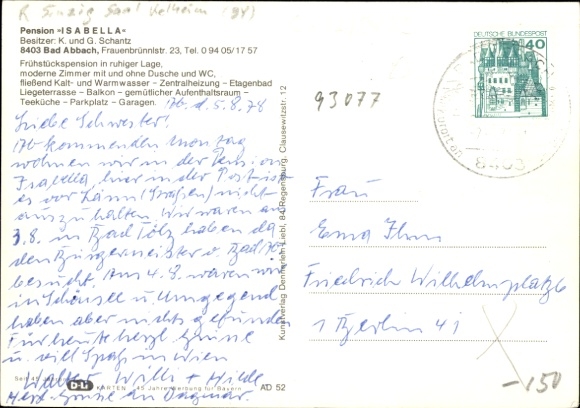 Pension »ISABELLA«
Besitzer: K. und G. Schantz
8403 Bad Abbach, Frauenbrünnlstr. 23, Tel. 0 94 05/17 57
Frühstückspension in ruhiger Lage,
moderne Zimmer mit und ohne Dusche und WC,
fließend Kalt- und Warmwasser – Zentralheizung – Etagenbad
Liegeterrasse – Balkon – gemütlicher Aufenthaltsraum –
Teeküche – Parkplatz – Garagen.
Ab. d. 5.8.78
Liebe Schwester!
Ab kommenden Montag
wohnen wir in der Pension
Isabella, hier in der Post ist
es vor Lärm (Straßen) nicht
auszuhalten. Wir waren am
3.8. in Bad Tölz haben da
den Bürgermeister v. Bad
besucht. Am 4.8. waren wir
in u. Umgegend
haben aber nichts gefunden
Für heute herzl. Grüße
u. viel Spaß in Wien
Walter Willi + Hilde
Herzl. Grüße an Dagmar.
D-Li KARTEN
45 Jahre Werbung für Bayern
AD 52
Kunstverlag Dennerlein Liebl, 84 Regensburg, Clausewitzstr. 12
93077
DEUTSCHE BUNDESPOST
40
8403
Frau
Erna Ihm
Friedrich Wilhelmplatz 6
1 Berlin 41
-150